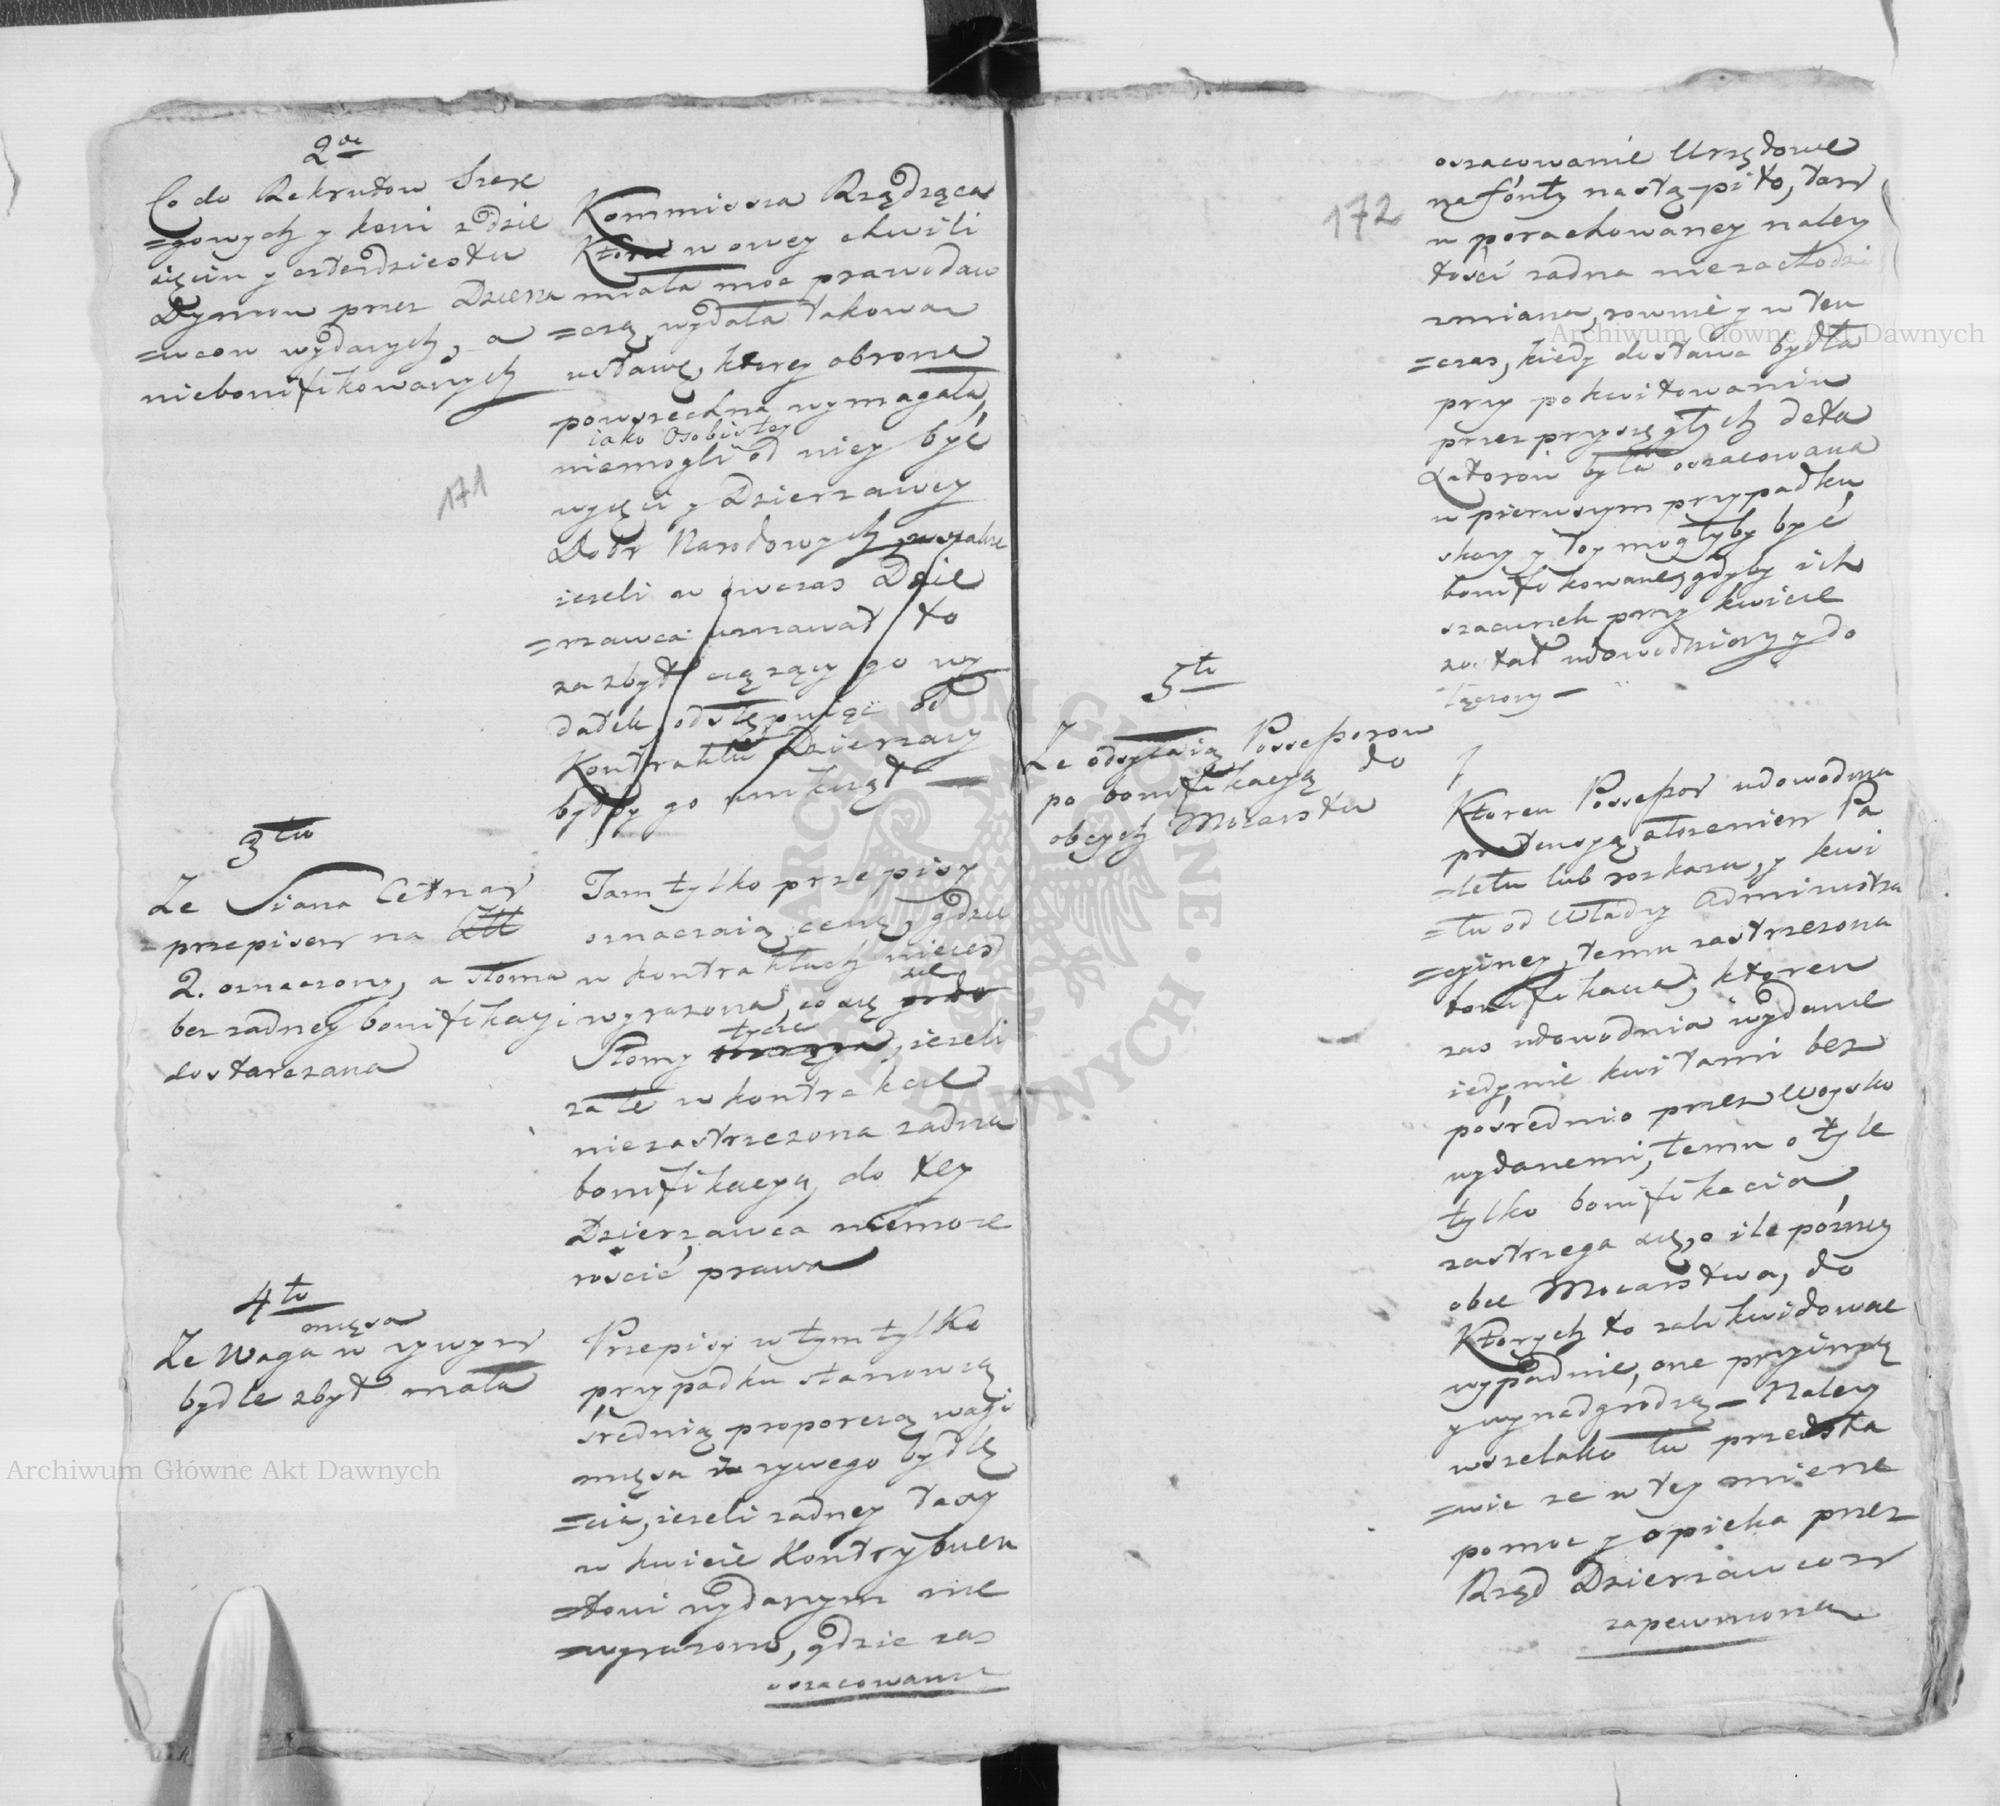 2do
Co do Rekrutow Szere
=gowych y koni z dzie
sięciu y czterdziestu
Dymow przez Dzierża
=wcow wydanych, a
niebonifikowanych
171
Kommissza Rządząca
Która w owey chwili
miała moc prawodaw
=czą, wydała takową
ustawę, ktorey obrona
powszechna wymagała,
iako Osobistey
niemogli od niey być
wyjęci y Dzierzawcy
Dobr Narodowych, wszakże
iezeli w owczas Dzie
=rzawca uznawał to
za zbyt ciężący go wy
datek, odstępuiąc od
Kontraktu Dzierzawy
byłby go uniknął
3tio
Ze Siana Cetnar
=przepisem na Złł
2. oznaczony, a słoma
bez zadney bonifikacyi
dostarczana
Tam tylko przepisy
oznaczaią cenę, gdzie
w kontraktach nieiest
wyrazona, co się
Słomy tycze, iezeli
za te w kontrakcie
niezastrzezona zadna
bonifikacya, do tey
Dzierzawca niemoze
rościć prawa
4to
mięsa
Ze Waga w zywym
bydle zbyt mała
Przepisy w tym tylko
przypadku stanowią
średnią proporczą wagi
mięsa w zywego bydlę
=cia, iezeli zadney taxy
w kwicie Kontrybuen
=towi wydanym nie
=wyrazono, gdzie zas
oszacowanie
172
oszacowanie Urzędowe
na fónty nastąpiło, tam
w porachowaney nalezy
tości zadna niezachodzi
zmiana, rownie y w ten
=czas, kiedy dostawa bydła
przy pokwitowaniu
przez przysięgłych deta
xatorow była oszacowana
w pierwszym przypadku,
skory y łoy mogłyby być
bonifikowane, gdyby ich
szacunek przy kwicie
został udowodniony y do
łączony —
5to
Ze odsyłaią Possessorow
po bonifikacyą do
obcych Mocarstw
Ktoren Possessor udowodnia
pretensyą złozeniem Pa
=letu lub rozkazu, y kwi
=tu od Władzy Administra
=cyiney, temu zastrzezona
bonifikacia, ktoren
zas udowodnia wydanie
iedynie kwitami bez
pośrednio przez Woysko
wydanemi, temu o tyle
tylko bonifikacia
zastrzega się, o ile pózniey
obce Mocarstwa, do
Ktorych to zalikwidowac
wypadnie, one przyimą
y wynadgrodzą — Nalezy
wszelako tu przedsta
=wic ze w tey mierze
pomoc y opieka przez
Rząd Dzierzawcom
zapewniona
Archiwum Główne Akt Dawnych
Archiwum Główne Akt Dawnych
ARCHIWUM GŁÓWNE AKT DAWNYCH